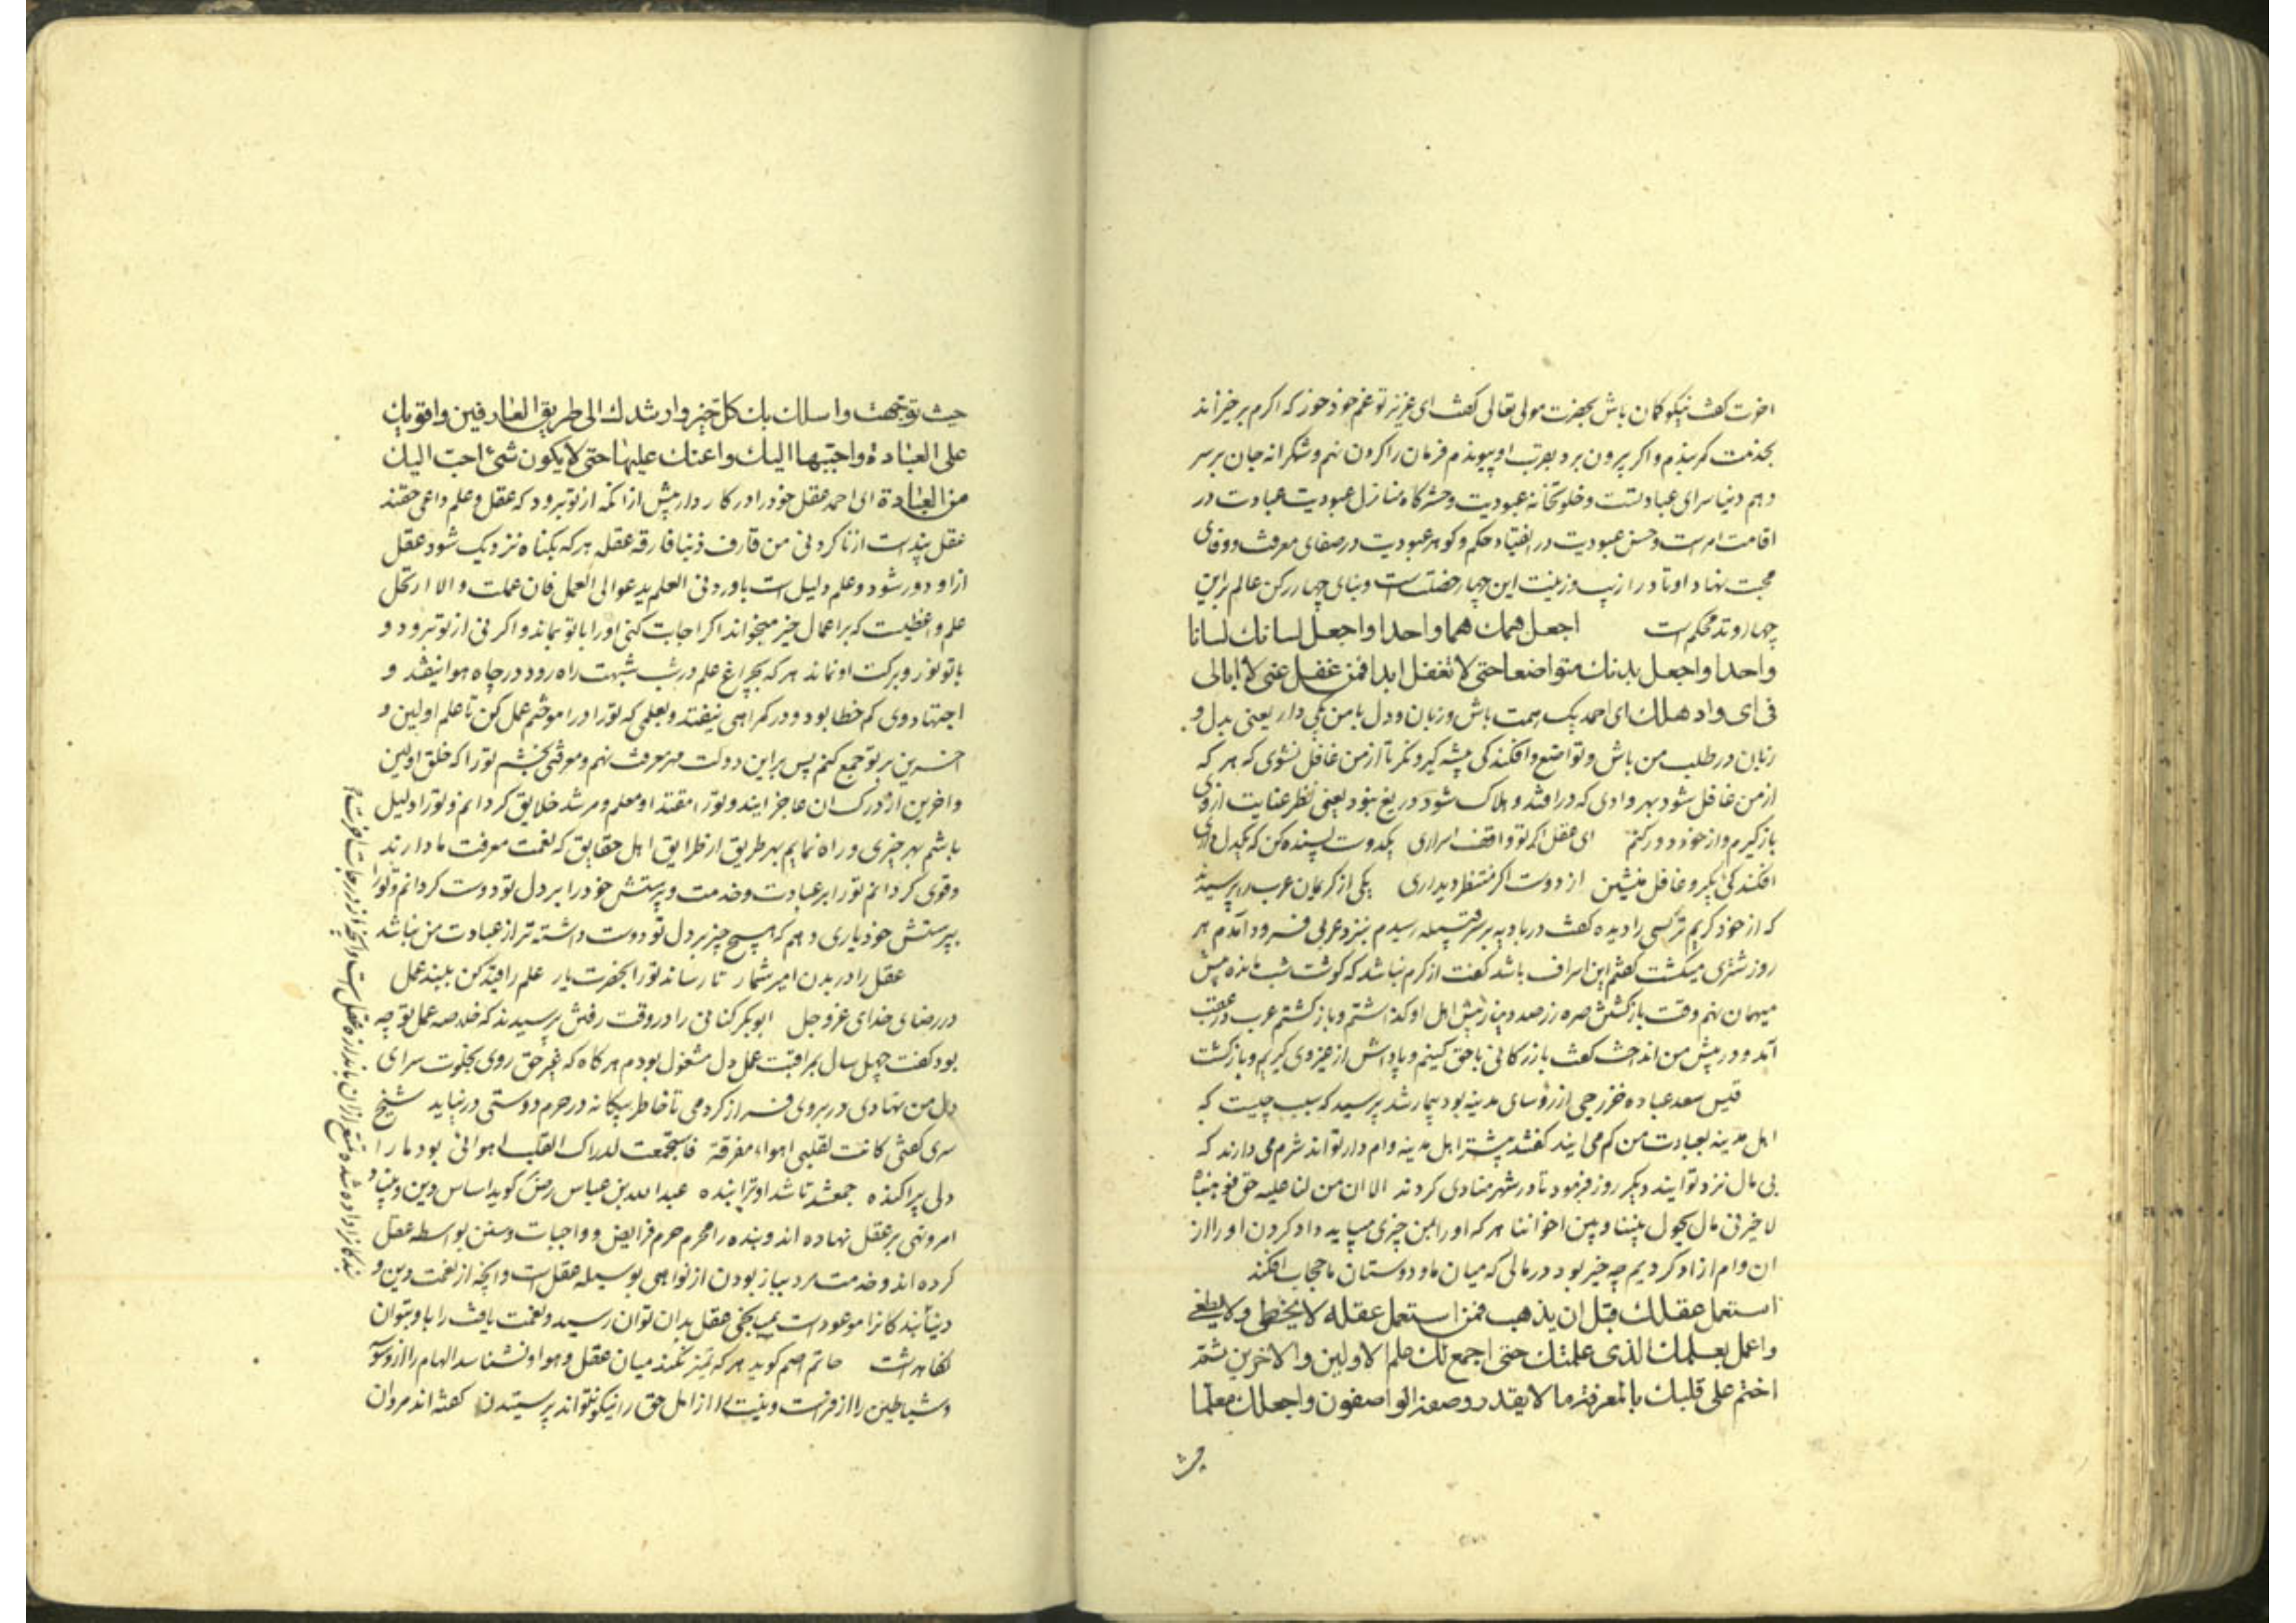 اخوت کفت نیکو کمان باش بحضرت مولی تعالی کفت ای عزیز تو غم خود خور که اکرم برخیزاند
بخدمت کمر بندم و اکر بیرون برد بقربت او پیوندم فرمان را کردن نهم و شکرانه جان بر سر
دهم دنیا سرای عبادتست و خلوتخانه عبودیت و حشرکاه منازل عبودیت عبادت در
اقامت امرست و حسن عبودیت در انقیاد حکم و کوهر عبودیت در صفای معرفت و وفای
محبت نهاد اوتاد را زیب و زینت این چهار خصلتست و بنای چهار رکن عالم براین
چهار وتد محکم است اجعل همك هما واحدا واجعل لسانك لسانا
واحدا واجعل بدنك متواضعا حتی لا تغفل ابدا فمن غفل عنی لا ابالی
فی ای واد هلك ای احمد یک همت باش و زبان و دل با من یکی دار یعنی بدل و
زبان در طلب من باش و تواضع و افکندکی پیشه کیر و نکر تا از من غافل نشوی که هر که
از من غافل شود بهر وادی که در افتد و هلاک شود دریغ نبود یعنی نظر عنایت از وی
باز کیرم و از خود دور کنم ای عقل اکر تو واقف اسراری یکدوست پسنده کن که یکدل داری
افکندکی بکیر و غافل منشین از دوست اکر منتظر دیداری یکی از کریمان عرب را پرسیدند
که از خود کریم تر کسی را دیده کفت در بادیه بر سر قبیله رسیدم بنزد عربی فرود آمدم هر
روز شتری میکشت کفتم این اسراف باشد کفت از کرم نباشد که کوشت شب مانده پیش
میهمان نهم وقت بازکشتن صره زر صد دینار پیش اهل او کذاشتم و بازکشتم عرب در عقب
آمد و در پیش من انداخت کفت بازرکانی با حق کنیم و پاداش از هر وی کیریم و بازکشت
قیس سعد عباده خزرجی از رؤسای مدینه بود بیمار شد پرسید که سبب چیست که
اهل مدینه بعیادت من کم می ایند کفتند بیشتر اهل مدینه وام دار تواند شرم می دارند که
بی مال نزد تو ایند دیکر روز فرمود تا در شهر منادی کردند الا ان من لنا علیه حق فوهبناه
لا خیر فی مال یحول بیننا و بین اخواننا هر که او را بمن چیزی میباید داد کردن او را از
ان وام ازاد کردیم چه خیر بود در مالی که میان ما و دوستان ما حجاب افکند
استعمل عقلك قبل ان یذهب فمن استعمل عقله لا یخطی ولا یطغی
واعمل بعلمك الذی علمتك حتی اجمع لك علم الاولین والاخرین ثم
اختم علی قلبك بالمعرفة ما لا یقدر وصفه الواصفون واجعلك معلما
حیث
حیث توجهت واسلك بك كل خیر وارشدك الی طریق العارفین واقویك
علی العبادة واحببها الیك واعنك علیها حتی لا یکون شئ احب الیك
من العبادة ای احمد عقل خود را در کار دار پیش از انکه از تو برود که عقل و علم داعی حقند
عقل پندست از ناکردنی من قارف ذنبا فارقه عقله هر که بکناه نزدیک شود عقل
از او دور شود و علم دلیل است باوردنی العلم یدعو الی العمل فان عملت والا ارتحل
علم واعظیست که بر اعمال خیر میخواند اکر اجابت کنی او را با تو بماند و اکر نی از تو برود و
با تو نور و برکت او نماند هر که بچراغ علم در شب شبهت راه رود در چاه هوا نیفتد و
اجتهاد وی کم خطا بود و در کمراهی نیفتد و بعلمی که تو را در اموختم عمل کن تا علم اولین و
اخرین بر تو جمع کنم پس براین دولت مهر معرفت نهم و معرفتی بخشم تو را که خلق اولین
و اخرین از درک ان عاجز ایند و تو را مقتدا و معلم و مرشد خلایق کردانم و تو را دلیل
باشم بهر چیزی و راه نمایم بهر طریق از طرایق اهل حقایق که نعمت معرفت ما دارند
و قوی کردانم تو را بر عبادت و خدمت و پرستش خود را بر دل تو دوست کردانم و تو را
بپرستش خود یاری دهم که هیچ چیز بر دل تو دوست داشته تر از عبادت من نباشد
عقل را در بدن امیر شمار تا رساند تو را بحضرت یار علم را قید کن ببند عمل
در رضای خدای عز و جل ابوبکر کتانی را در وقت رفتن پرسیدند که خلاصه عمل تو چه
بود کفت چهل سال بمراقبت عمل دل مشغول بودم هر کاه که غیر حق روی بخلوت سرای
دل من نهادی در بروی فراز کردمی تا خاطر بیکانه در حرم دوستی درنیاید شیخ
سری کفتی کانت لقلبی اهواء مفرقة فاستجمعت القلب اهوائی بود مارا
دلی پراکنده جمع شد تا شد او تو را بنده عبدالله بن عباس رض کوید اساس دین و بنیاد
امر و نهی بر عقل نهاده اند و بنده را محرم حرم فرایض و واجبات و سنن بواسطه عقل
کرده اند و خدمت مرد بباز بودن از نواهی بوسیله عقل است و انچه از نعمت دین و
دنیا بندکانرا موعودست بمیانجی عقل بدان توان رسید و نعمت یافت را با و بتوان
نکاه داشت حاتم اصم کوید هر که تمیز نکند میان عقل و هوا و نشناسد الهام را از وسوسه
و شیاطین را از فراست و نیت را از اهل حق را نیکو نتواند پرسیدن کفته اند مردان
بندکانرا داده شده تمتع از ان باندازه عقل است و انچه از درجات اخرتست